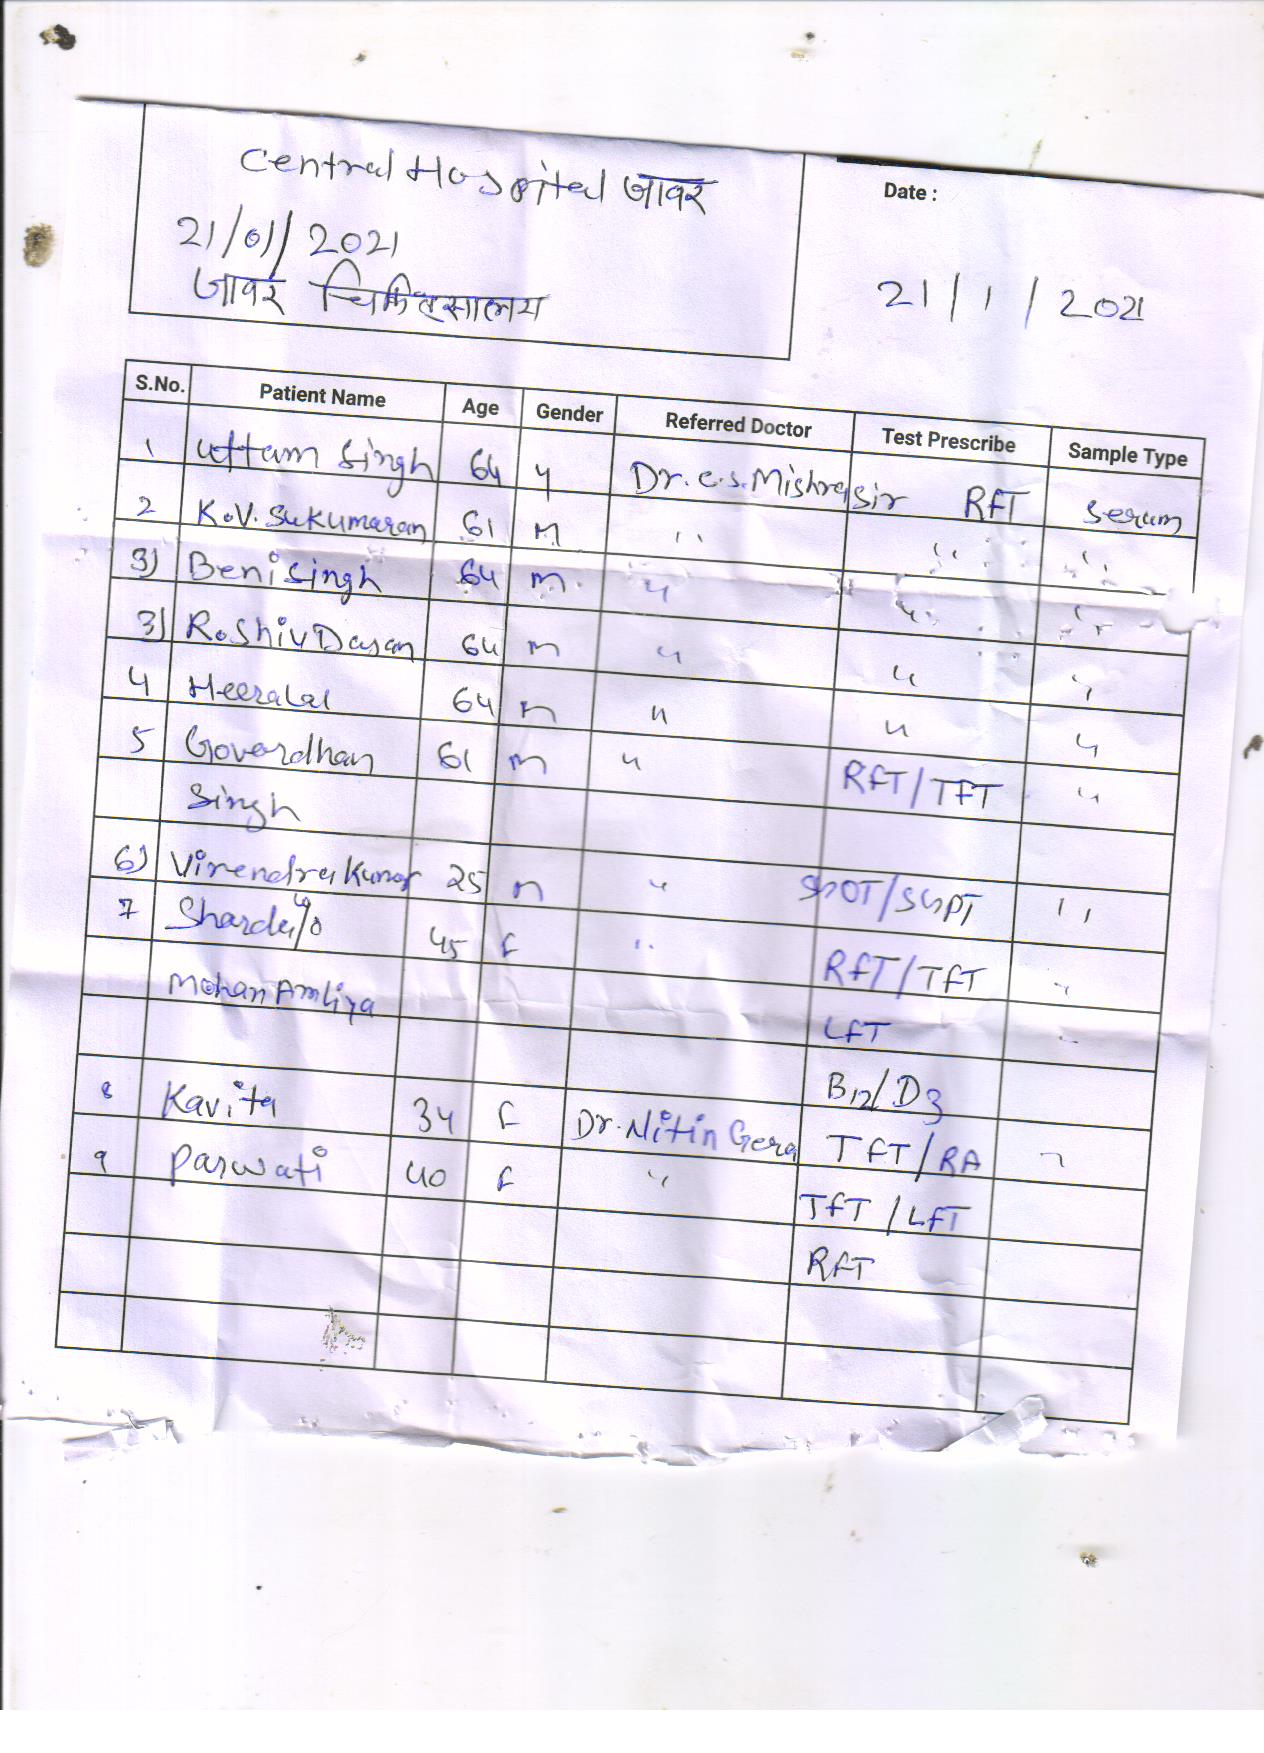 Central Hospital जावर
21/01/2021
जावर चिकित्सालय
Date :
21/1/2021
S.No. Patient Name Age Gender Referred Doctor Test Prescribe Sample Type
1 Uttam Singh 64 Dr. C.S. Mishra Sir RFT Serum
2 K.V. Sukumaran 61 M " " "
3) Beni Singh 64 m " " "
3) R. Shiv Dasan 64 m " " "
4 Heeralal 64 m " " "
5 Goverdhan 61 m " RFT/TFT "
Singh
6) Virendra Kumar 25 m " SGOT/SGPT "
7 Sharda w/o 45 F " RFT/TFT "
Mohan Amliya LFT "
B12/D3
8 Kavita 34 F Dr. Nitin Gera TFT/RA "
9 Parwati 40 F " TFT/LFT
RFT